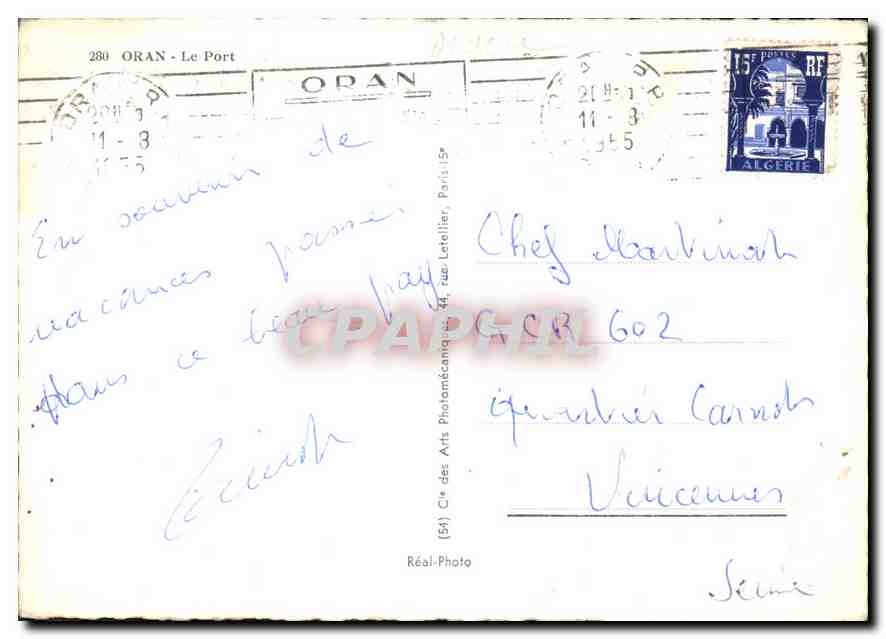 280 ORAN - Le Port
ORAN
21H
11 - 8
1955
15F POSTES RF
ALGERIE
En souvenir de
vacances passé
dans ce beau pays
Chef Martinot
602
Quartier Carnot
Vincennes
Seine
(54) Cie des Arts Photomécaniques 44, rue Letellier, Paris-15e
Réal-Photo
CPAPHIL